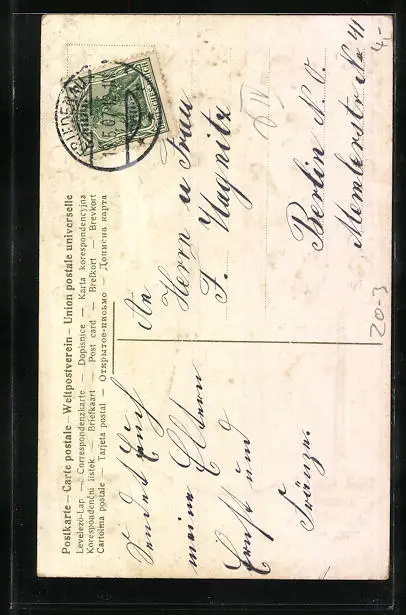 Postkarte — Carte postale — Weltpostverein — Union postale universelle
Levelező-Lap — Correspondenzkarte — Dopisnice — Karta korespondencyjna
Korespondenční lístek — Briefkaart — Post card — Brefkort — Brevkort
Cartolina postale — Tarjeta postal — Открытое-письмо — Дописна карта
5.07
An
Herrn u Frau
F. Wagnitz
Berlin N. O.
Memlerstr No 41
sendet Euch
meine Eltern
Ernst und
Fränze.
20-3
4,-